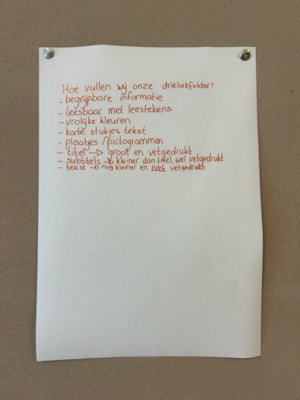 Hoe vullen wij onze drieluikfolder?
- begrijpbare informatie
- leesbaar met leestekens
- vrolijke kleuren
- korte stukjes tekst
- plaatjes/pictogrammen
- titel → groot en vetgedrukt
- subtitels → kleiner dan titel, wel vetgedrukt
- tekst → nog kleiner en niet vetgedrukt